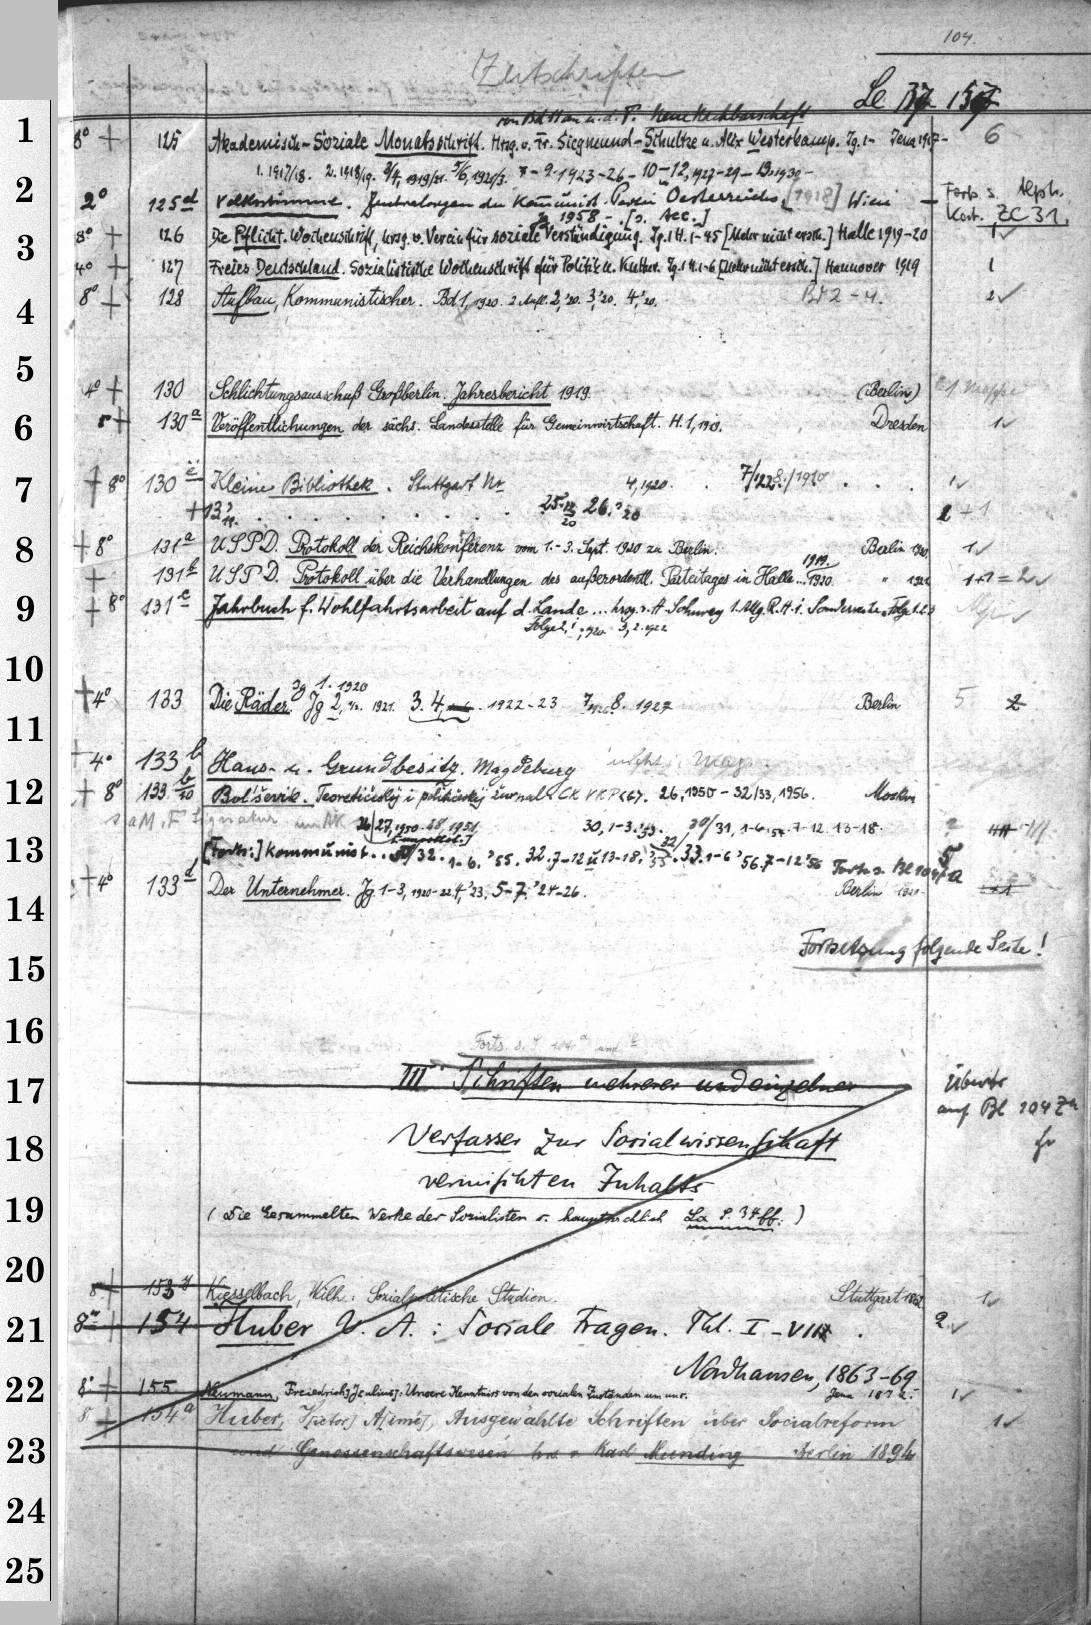 104.
Zeitschriften
Le 157
von Bd 11 an u. d. T. Neue Nachbarschaft
1 8° + 125 Akademisch-Soziale Monatsschrift. Hrsg. v. Fr. Siegmund-Schultze u. Alix Westerkamp. Jg. 1- Jena 1917- 6
1. 1917/18. 2. 1918/19. 3/4, 1919/21. 5/6, 1921/3. 7-9. 1923-26 - 10-12, 1927-29 - 13. 1930 -
2 2° 125d Volksstimme. Zentralorgan der Kommunist. Partei Oesterreichs, [1918] Wien - Forts s. Alph.
1958 - . [s. Acc.] Kart. ZC 31.
3 8° + 126 Die Pflicht. Wochenschrift, hrsg. v. Verein für soziale Verständigung. Jg. 1 H. 1-45 [Mehr nicht ersch.] Halle 1919-20 1✓
4° + 127 Freies Deutschland. Sozialistische Wochenschrift für Politik u. Kultur. Jg. 1 H. 1-6 [Mehr nicht ersch.] Hannover 1919 1
8° + 128 Aufbau, Kommunistischer. Bd 1, 1920. 2 Aufl. 2,'20. 3,'20. 4,'20. Bd 2-4. 2✓
4
5
4° + 130 Schlichtungsausschuß Großberlin. Jahresbericht 1919. (Berlin) 1 Mappe
6 + 130a Veröffentlichungen der sächs. Landesstelle für Gemeinwirtschaft. H. 1, 1920. Dresden 1✓
7 + 8° 130 Kleine Bibliothek. Stuttgart Nr 4, 1920. 1✓
25 26. 20 2 + 1
8 + 8° 131a USPD. Protokoll der Reichskonferenz vom 1.-3. Sept. 1920 zu Berlin. Berlin 1920. 1✓
+ 131b USPD. Protokoll über die Verhandlungen des außerordentl. Parteitages in Halle... 1920. " 1+1=2✓
1919.
9 + 8° 131c Jahrbuch f. Wohlfahrtsarbeit auf d. Lande ... hrsg. v.
Folge 2, 1920. 3, 2. 1922
10
Jg 1. 1920
+ 4° 133 Die Räder. Jg 2, 1921. 3. 4, 1922-23 8. 1927 Berlin 5 2
11
+ 4° 133b Haus- u. Grundbesitz. Magdeburg
12 + 8° 133 Bol'ševik. Teoretičeskij i političeskij žurnal CK VKP(b). 26, 1950 - 32/33, 1956. Moskau
Signatur 26 27, 1950 28, 1951 30, 1-3. 30/31, 1-6. 7-12. 13-18.
13 [Forts:] Kommunist. 1-6. '55. 32. 7-12 u 13-18, 33. 1-6 '56. 7-12 '56 Forts s. Bl 104
+ 4° 133d Der Unternehmer. Jg. 1-3, 1920-22. 4,'23. 5-7,'24-26. Berlin
14
Fortsetzung folgende Seite!
15
16
17 III. Schriften mehrerer und einzelner Übertr
auf Bl 104
18 Verfasser zur Sozialwissenschaft
vermischten Inhalts
19 (Die Gesammelten Werke der Sozialisten s. hauptsächlich La S. 34 ff.)
20
8 + 153 Kiesselbach, Wilh.: Sozialpolitische Studien. Stuttgart 1862 1✓
21 8° 154 Huber V. A.: Soziale Fragen. Thl. I-VII. 2✓
Nordhausen, 1863-69
22 8° 155 Neumann, Friedrich Julius: Unsere Kenntniss von den socialen Zuständen um uns. Jena 1872. 1✓
8 154a Huber, V[ictor] A[imé], Ausgewählte Schriften über Socialreform 1✓
23 und Genossenschaftswesen hrs. v. Karl Munding Berlin 1894
24
25